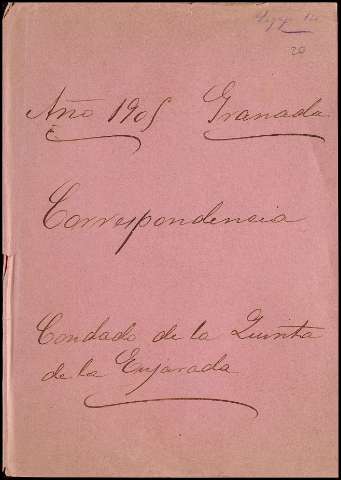 20
Año 1905 Granada
Correspondencia
Condado de la Quinta
de la Enjarada